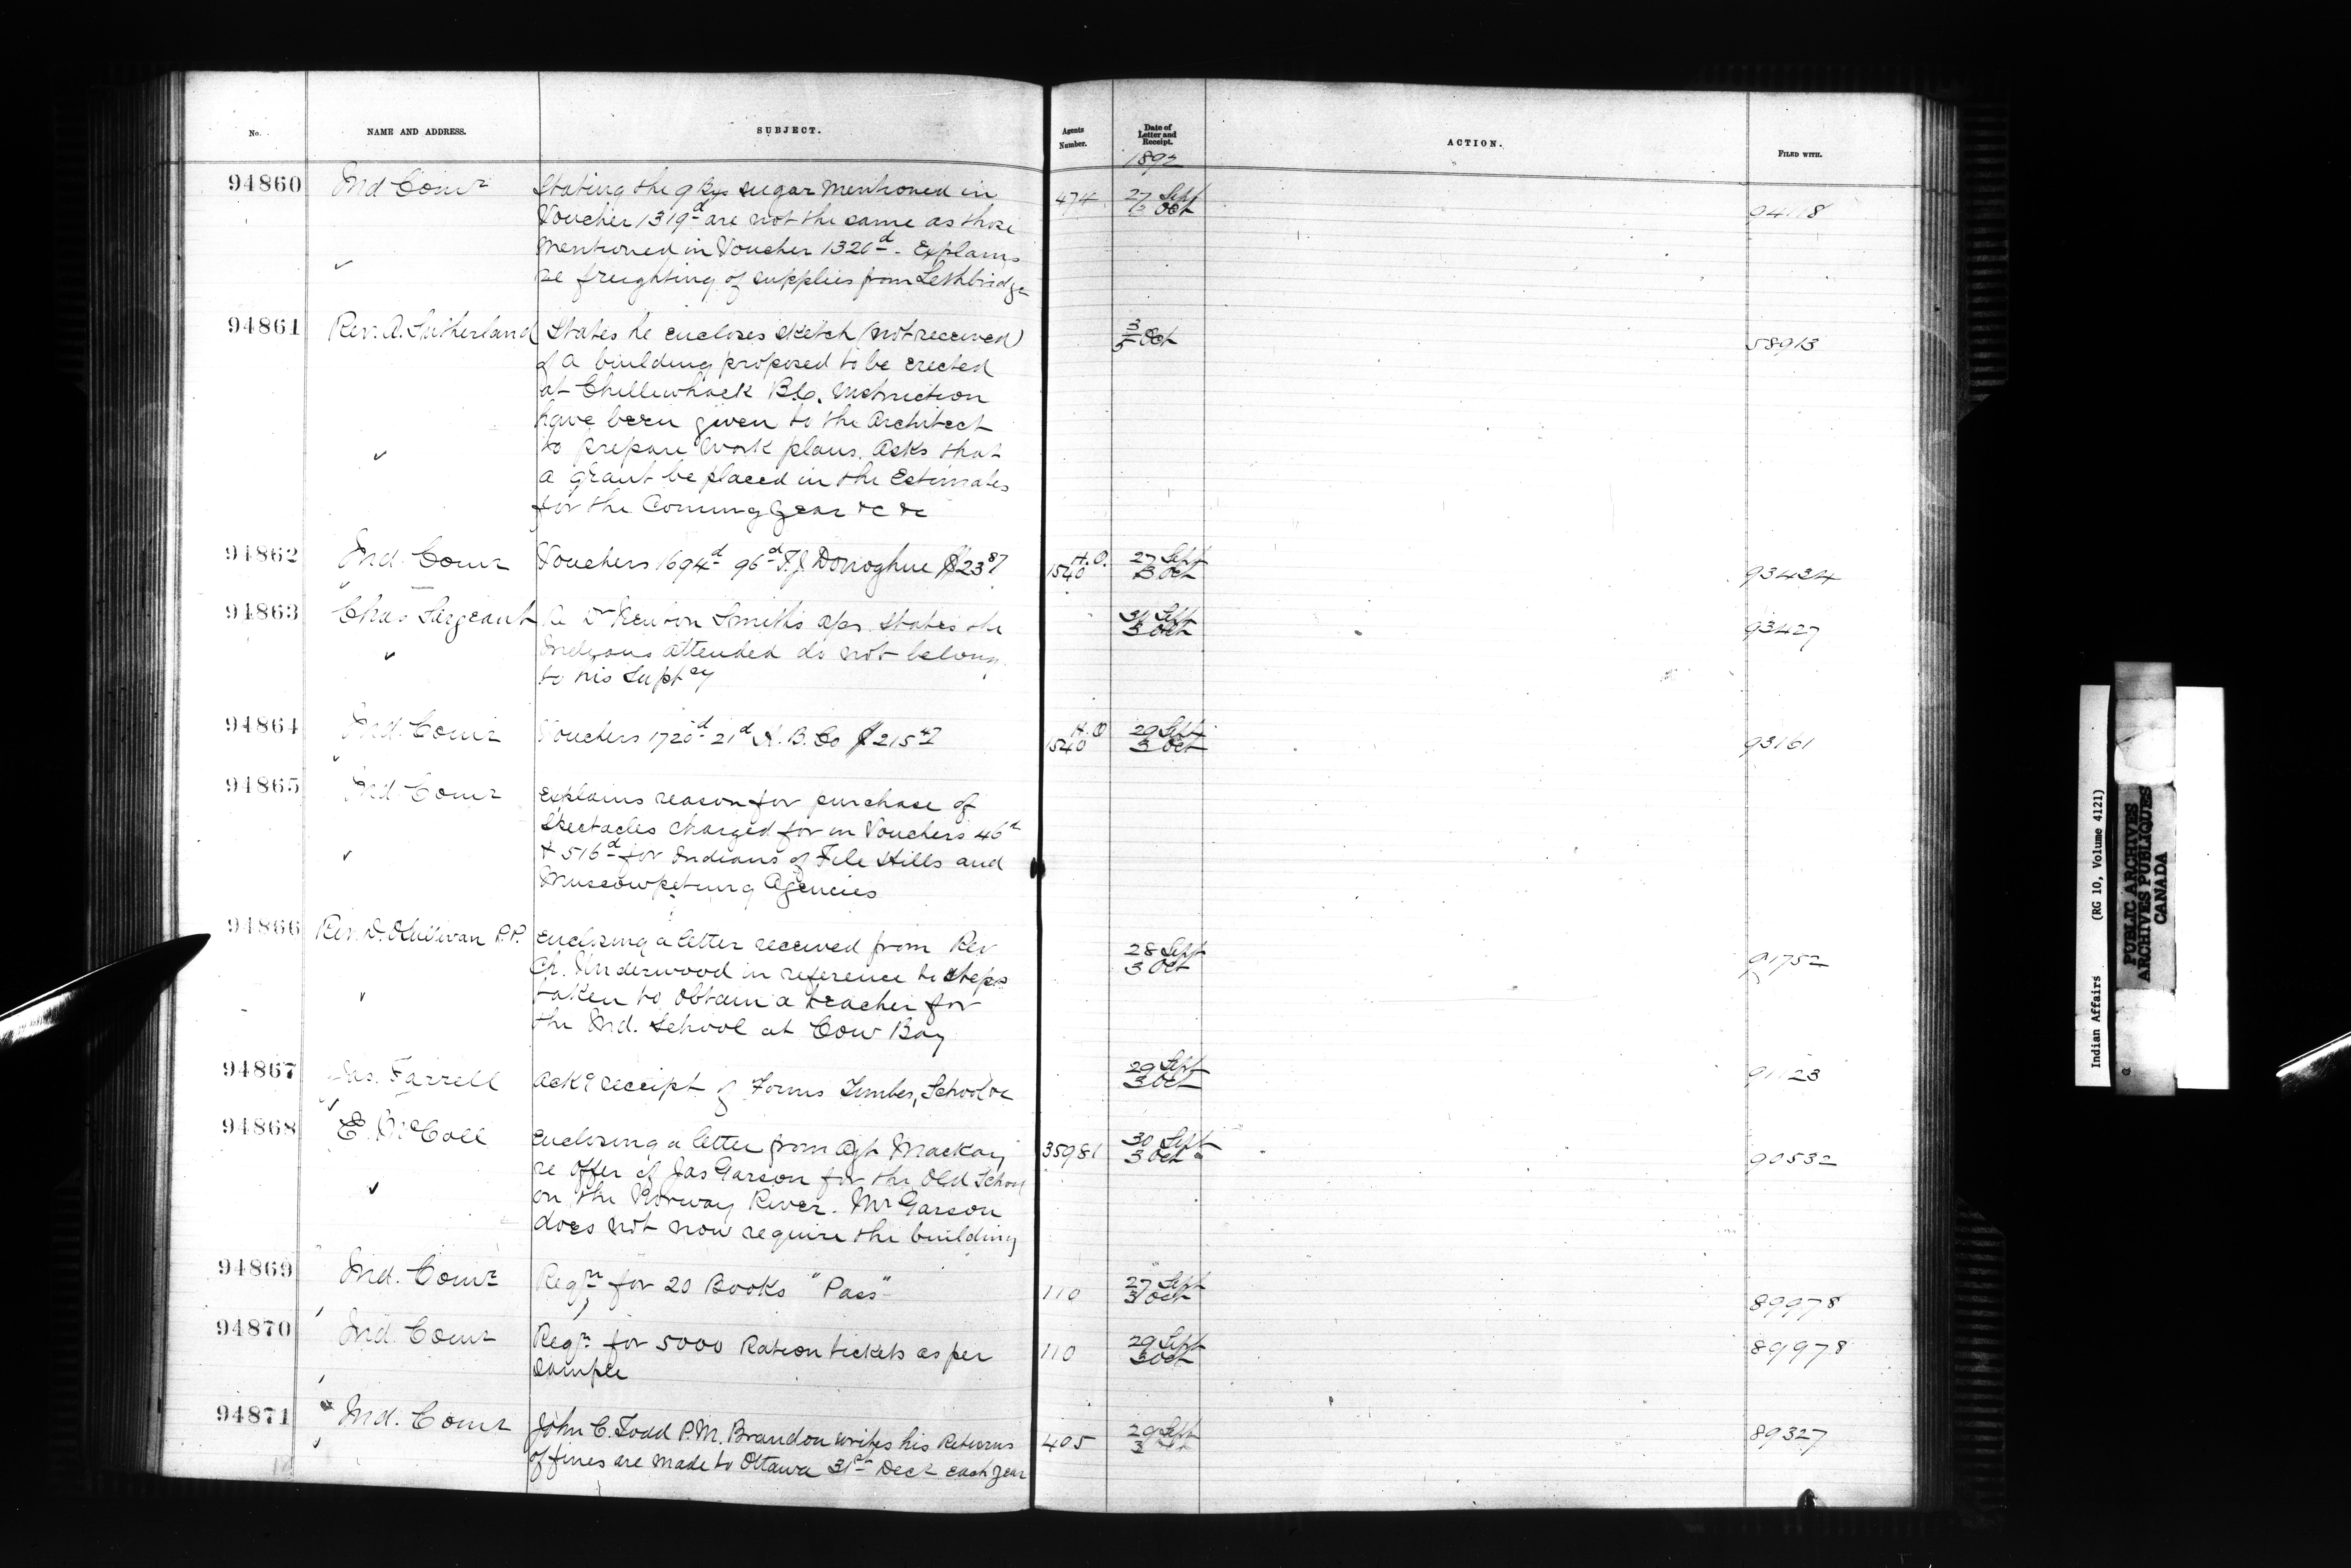 No. NAME AND ADDRESS. SUBJECT. Agents Number. Date of Letter and Receipt. ACTION. FILED WITH.
1892
94860 Ind Comr Stating the 9 Bgs sugar mentioned in 474 27 Sept
Voucher 1319d are not the same as those 3 Oct
mentioned in Voucher 1320d. Explains
re freighting of supplies from Lethbridge
94861 Rev. A. Sutherland States he encloses sketch (not received) 3/5 Oct 58913
of a building proposed to be erected
at Chilliwhack B.C. Instruction
have been given to the Architect
to prepare work plans. Asks that
a grant be placed in the Estimates
for the Coming Year &c &c
94862 Ind. Comr Vouchers 1694d 96d T. J. Donoghue $23.87 H.O. 1540 27 Sept 93434
3 Oct
94863 Chas Sargeant Re Dr Reuben Smith's a/cs. States the Sept 93427
Indians attended do not belong 3 Oct
to his Suptcy
94864 Ind. Comr Vouchers 1720d 21d H. B. Co $215.47 H.O 1540 29 Sept 93161
3 Oct
94865 Ind. Comr Explains reason for purchase of
Spectacles charged for in Vouchers 46d
& 516d for Indians of File Hills and
Muscowpetung Agencies
94866 Rev. D. O'Sullivan P.P. Enclosing a letter received from Rev 28 Sept 91752
Ch. Underwood in reference to steps 3 Oct
taken to obtain a teacher for
the Ind. School at Cow Bay
94867 Jas. Farrell Ackg receipt of Forms Timber, School &c 29 Sept
3 Oct
94868 E. McColl Enclosing a letter from Agt Mackay 35981 30 Sept 90532
re offer of Jas Garson for the Old School 3 Oct
on the Norway River. Mr Garson
does not now require the building
94869 Ind. Comr Reqn for 20 Books "Pass" 110 27 Sept 89978
3 Oct
94870 Ind. Comr Reqn for 5000 Ration tickets as per 110 29 Sept 89978
sample 3 Oct
94871 Ind. Comr John C. Todd P.M. Brandon writes his Returns 405 29 Sept 89327
of fines are made to Ottawa 31st Decr each year 3
Indian Affairs (RG 10, Volume 4121)
PUBLIC ARCHIVES
ARCHIVES PUBLIQUES
CANADA